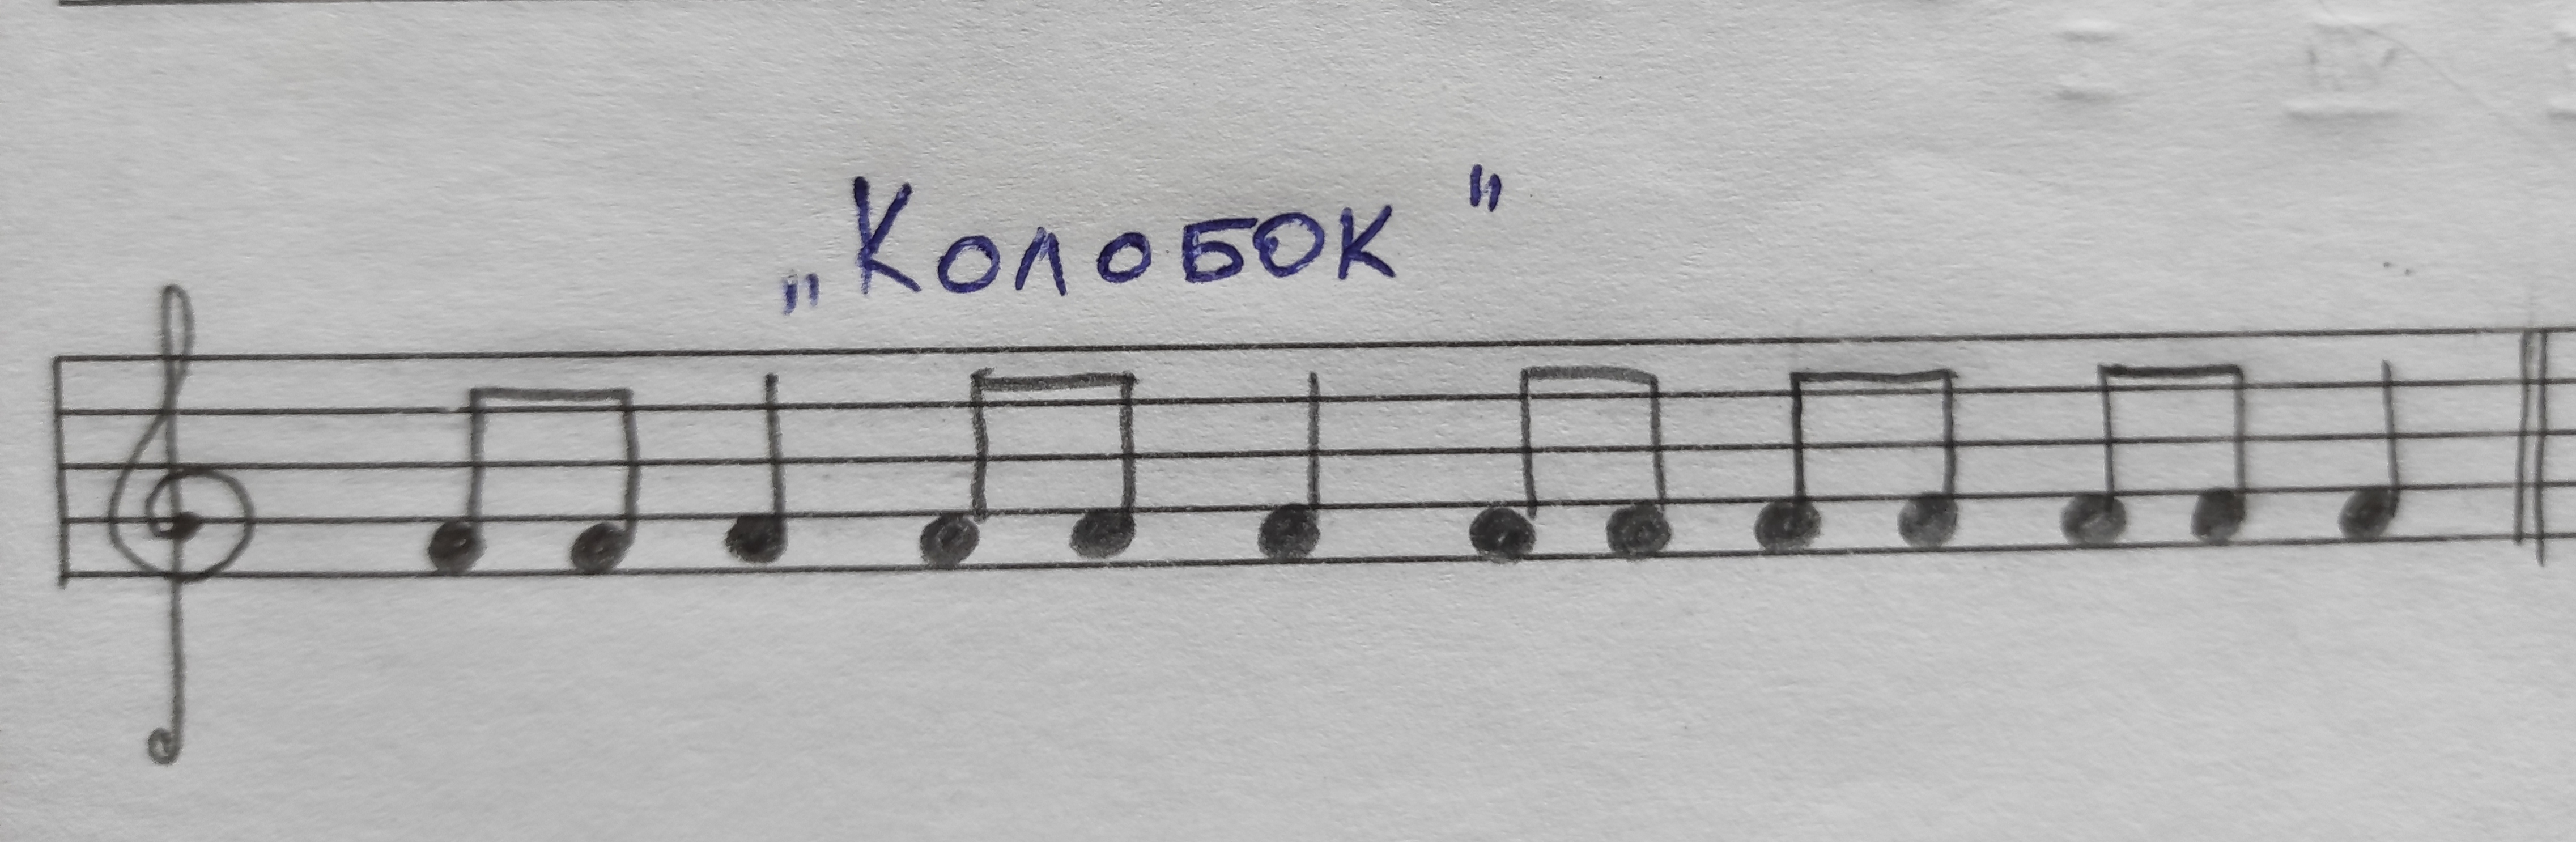 „Колобок"